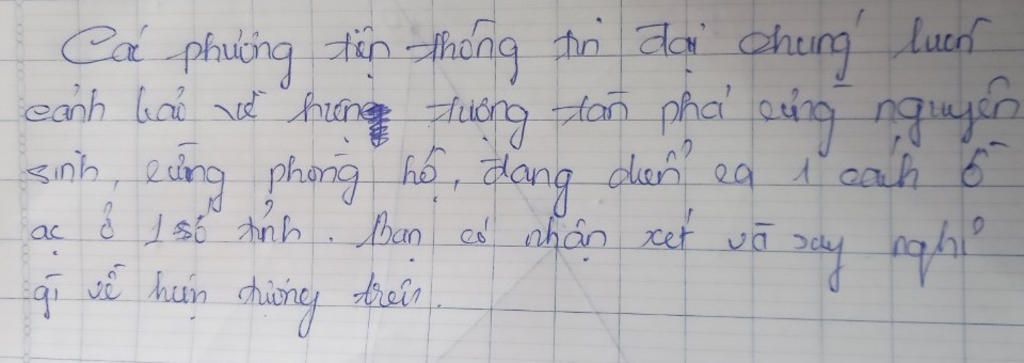 Các phương tiện thông tin đại chúng luôn
cảnh báo về hiện tượng tàn phá rừng nguyên
sinh, rừng phòng hộ, đang diễn ra 1 cách ồ
ạt ở 1 số tỉnh. Bạn có nhận xét và suy nghĩ
gì về hiện tượng trên.